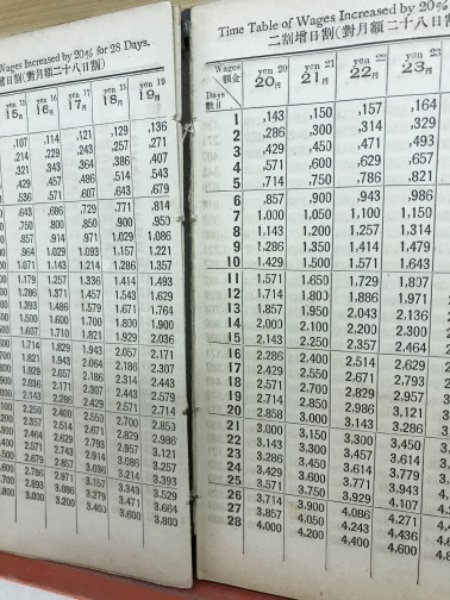 Wages Increased by 20% for 28 Days.
增日割(對月額二十八日割)
yen 15 yen 16 yen 17 yen 18 yen 19
15円 16円 17円 18円 19円
,107 ,114 ,121 ,129 ,136
,214 ,229 ,243 ,257 ,271
,321 ,343 ,364 ,386 ,407
,429 ,457 ,486 ,514 ,543
,536 ,571 ,607 ,643 ,679
,643 ,686 ,729 ,771 ,814
,750 ,800 ,850 ,900 ,950
,857 ,914 ,971 1,029 1,086
,964 1,029 1,093 1,157 1,221
1,071 1,143 1,214 1,286 1,357
1,179 1,257 1,336 1,414 1,493
1,286 1,371 1,457 1,543 1,629
1,393 1,486 1,579 1,671 1,764
1,500 1,600 1,700 1,800 1,900
1,607 1,710 1,821 1,929 2,036
1,714 1,829 1,943 2,057 2,171
1,821 1,943 2,064 2,186 2,307
1,929 2,057 2,186 2,314 2,443
2,036 2,171 2,307 2,443 2,579
2,143 2,286 2,429 2,571 2,714
2,250 2,400 2,550 2,700 2,850
2,357 2,514 2,671 2,829 2,986
2,464 2,629 2,793 2,957 3,121
2,571 2,743 2,914 3,086 3,257
2,679 2,857 3,036 3,214 3,393
2,786 2,971 3,157 3,343 3,529
2,893 3,086 3,279 3,471 3,664
3,000 3,200 3,400 3,600 3,800
Time Table of Wages Increased by 20%
二割增日割(對月額二十八日割)
Wages yen 20 yen 21 yen 22 yen 23
額金 20円 21円 22円 23円
Days
數日
1 ,143 ,150 ,157 ,164
2 ,286 ,300 ,314 ,329
3 ,429 ,450 ,471 ,493
4 ,571 ,600 ,629 ,657
5 ,714 ,750 ,786 ,821
6 ,857 ,900 ,943 ,986
7 1,000 1,050 1,100 1,150
8 1,143 1,200 1,257 1,314
9 1,286 1,350 1,414 1,479
10 1,429 1,500 1,571 1,643
11 1,571 1,650 1,729 1,807
12 1,714 1,800 1,886 1,971
13 1,857 1,950 2,043 2,136
14 2,000 2,100 2,200 2,300
15 2,143 2,250 2,357 2,464
16 2,286 2,400 2,514 2,629
17 2,429 2,550 2,671 2,793
18 2,571 2,700 2,829 2,957
19 2,714 2,850 2,986 3,121
20 2,858 3,000 3,143 3,286
21 3,000 3,150 3,300 3,450
22 3,143 3,300 3,457 3,614
23 3,286 3,450 3,614 3,779
24 3,429 3,600 3,771 3,943
25 3,571 3,750 3,929 4,107
26 3,714 3,900 4,086 4,271
27 3,857 4,050 4,243 4,436
28 4,000 4,200 4,400 4,600